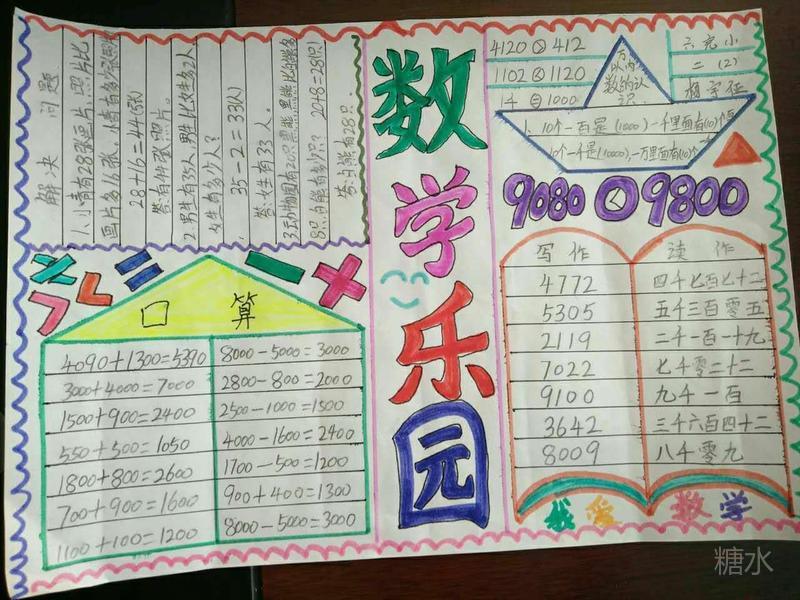 解决问题
1.小青有28张画片、照片比
画片多16张、小青有多少张照片
28+16=44(张)
答:有44张照片。
2.男生有35人,男生比女生多2人,
女生有多少人?
35-2=33(人)
答:女生有33人。
8只,白熊有多少只? 20+8=28(只)
答:白熊有28只
口算
4090+1300=5390
3000+4000=7000
1500+900=2400
550+500=1050
1800+800=2600
700+900=1600
1100+100=1200
8000-5000=3000
2800-800=2000
2500-1000=1500
4000-1600=2400
1700-500=1200
900+400=1300
8000-5000=3000
数学乐园
4120>412
1102<1120
14=1000
六完小
二(2)
万以内
数的认
识
1、10个一百是(1000)、一千里面有(10)个百
10个一千是(10000)、一万里面有(10)个
9080<9800
写作 读作
4772 四千七百七十二
5305 五千三百零五
2119 二千一百一十九
7022 七千零二十二
9100 九千一百
3642 三千六百四十二
8009 八千零九
我爱数学
糖水